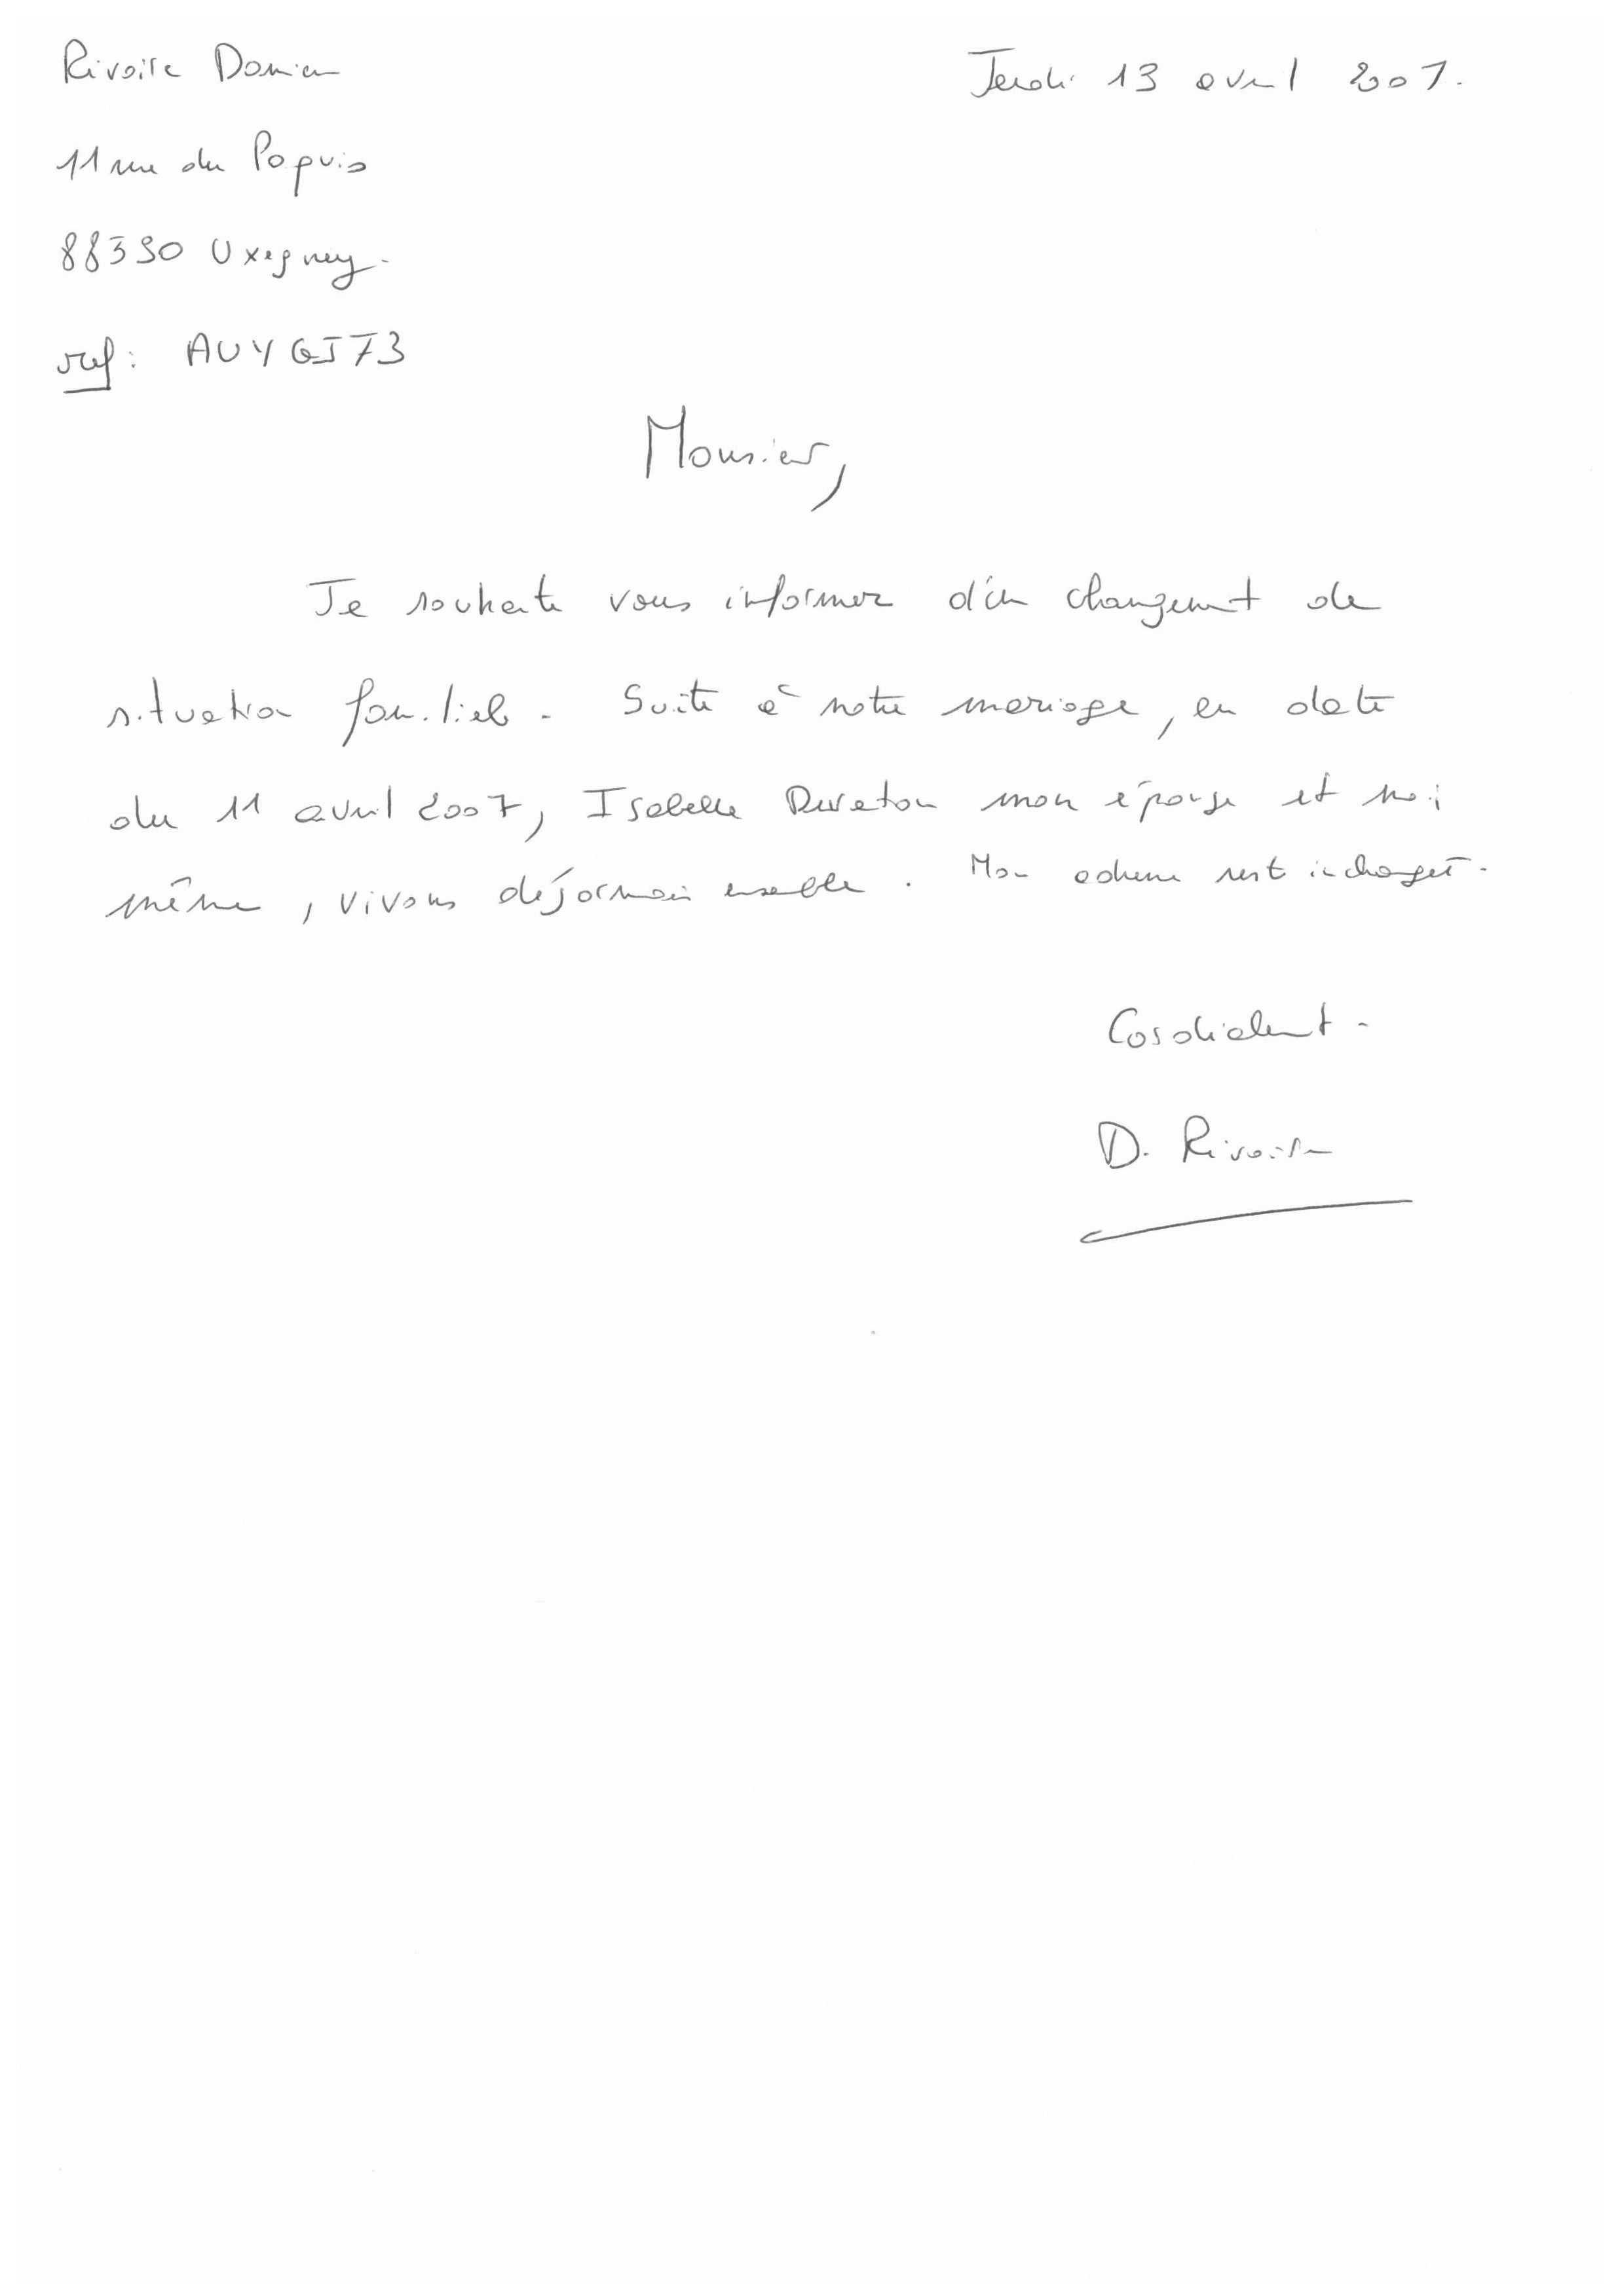 Rivoire Damien
Jeudi 13 avril 2007.
11 rue du Paquis
88390 Uxegney.
ref : AUYGJ73
Monsieur,
Je souhaite vous informer d'un changement de
situation familiale. Suite à notre mariage, en date
du 11 avril 2007, Isabelle Dureton mon épouse et moi
même, vivons désormais ensemble. Mon adresse reste inchangée.
Cordialement.
D. Rivoire